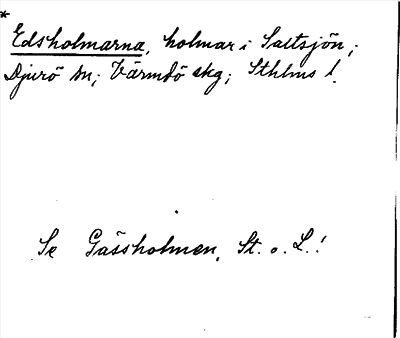 *
Edsholmarna, holmar i Saltsjön,;
Djurö sn; Värmdö skg; Sthlms l.
Se Gåsholmen, St. o. L.!